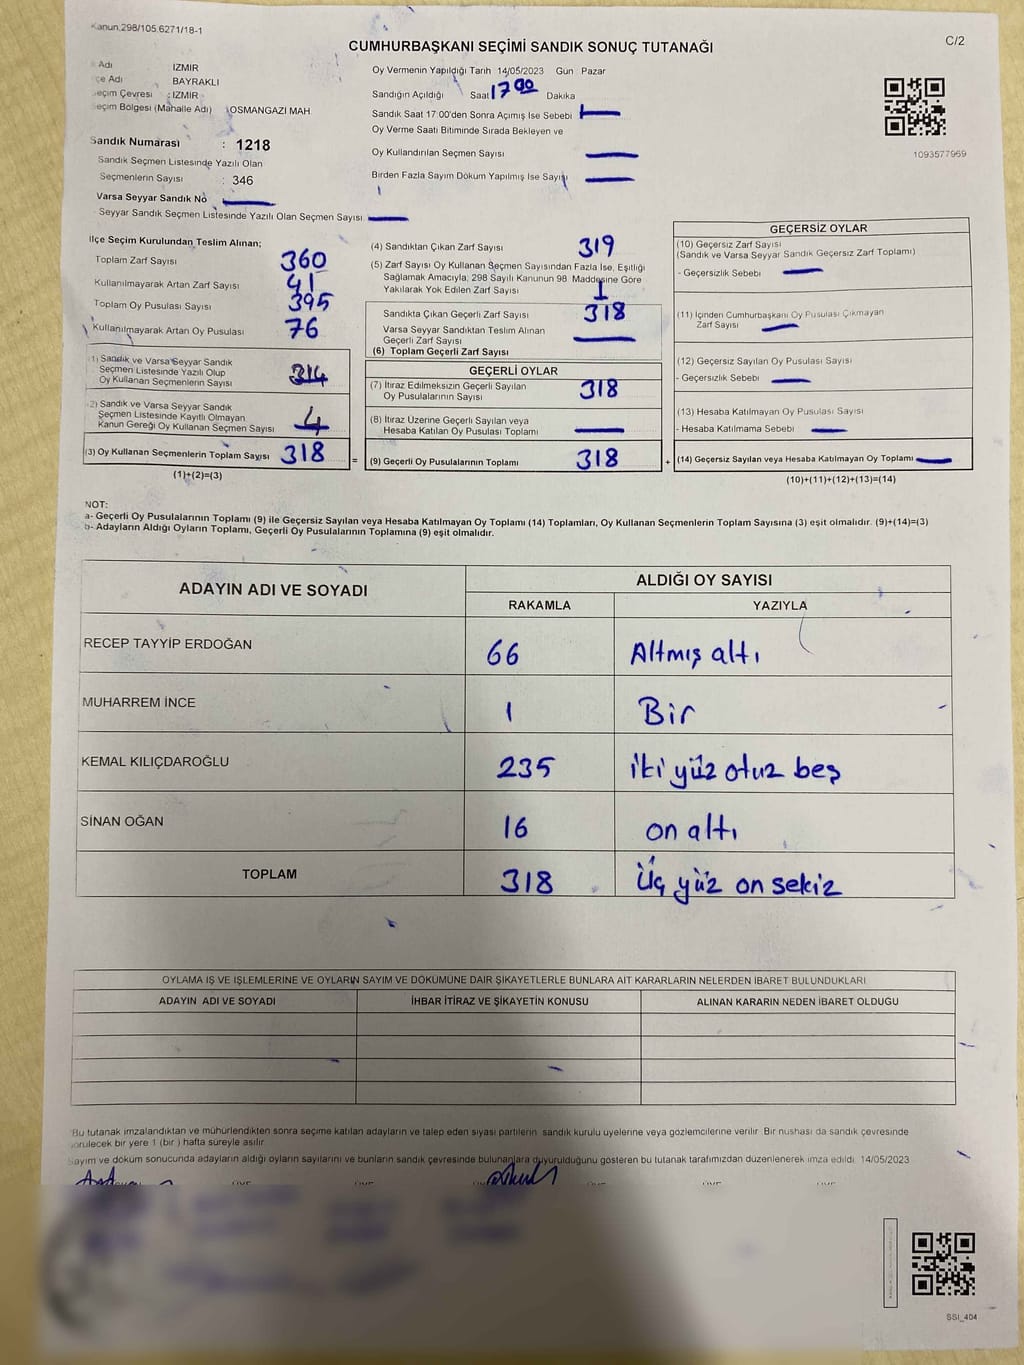 Kanun.298/105.6271/18-1
C/2
CUMHURBAŞKANI SEÇİMİ SANDIK SONUÇ TUTANAĞI
Adı İZMİR
çe Adı BAYRAKLI
eçim Çevresi : İZMİR
eçim Bölgesi (Mahalle Adı) :OSMANGAZİ MAH.
Oy Vermenin Yapıldığı Tarih 14/05/2023 Gün Pazar
Sandığın Açıldığı Saat 17 00 Dakika
Sandık Saat 17:00'den Sonra Açımış İse Sebebi
Oy Verme Saati Bitiminde Sırada Bekleyen ve
Oy Kullandırılan Seçmen Sayısı
Birden Fazla Sayım Döküm Yapılmış İse Sayısı
1093577969
Sandık Numarası : 1218
Sandık Seçmen Listesinde Yazılı Olan
Seçmenlerin Sayısı : 346
Varsa Seyyar Sandık No
Seyyar Sandık Seçmen Listesinde Yazılı Olan Seçmen Sayısı
İlçe Seçim Kurulundan Teslim Alınan;
Toplam Zarf Sayısı 360
Kullanılmayarak Artan Zarf Sayısı 41
Toplam Oy Pusulası Sayısı 395
Kullanılmayarak Artan Oy Pusulası 76
(1) Sandık ve Varsa Seyyar Sandık
Seçmen Listesinde Yazılı Olup
Oy Kullanan Seçmenlerin Sayısı 314
(2) Sandık ve Varsa Seyyar Sandık
Seçmen Listesinde Kayıtlı Olmayan
Kanun Gereği Oy Kullanan Seçmen Sayısı 4
(3) Oy Kullanan Seçmenlerin Toplam Sayısı 318 =
(1)+(2)=(3)
(4) Sandıktan Çıkan Zarf Sayısı 319
(5) Zarf Sayısı Oy Kullanan Seçmen Sayısından Fazla İse, Eşitliği
Sağlamak Amacıyla, 298 Sayılı Kanunun 98 Maddesine Göre
Yakılarak Yok Edilen Zarf Sayısı 1
Sandıkta Çıkan Geçerli Zarf Sayısı 318
Varsa Seyyar Sandıktan Teslim Alınan
Geçerli Zarf Sayısı
(6) Toplam Geçerli Zarf Sayısı
GEÇERLİ OYLAR
(7) İtiraz Edilmeksizin Geçerli Sayılan
Oy Pusulalarının Sayısı 318
(8) İtiraz Üzerine Geçerli Sayılan veya
Hesaba Katılan Oy Pusulası Toplamı
(9) Geçerli Oy Pusulalarının Toplamı 318 +
GEÇERSİZ OYLAR
(10) Geçersiz Zarf Sayısı
(Sandık ve Varsa Seyyar Sandık Geçersiz Zarf Toplamı)
- Geçersizlik Sebebi
(11) İçinden Cumhurbaşkanı Oy Pusulası Çıkmayan
Zarf Sayısı
(12) Geçersiz Sayılan Oy Pusulası Sayısı
- Geçersizlik Sebebi
(13) Hesaba Katılmayan Oy Pusulası Sayısı
- Hesaba Katılmama Sebebi
(14) Geçersiz Sayılan veya Hesaba Katılmayan Oy Toplamı
(10)+(11)+(12)+(13)=(14)
NOT:
a- Geçerli Oy Pusulalarının Toplamı (9) ile Geçersiz Sayılan veya Hesaba Katılmayan Oy Toplamı (14) Toplamları, Oy Kullanan Seçmenlerin Toplam Sayısına (3) eşit olmalıdır. (9)+(14)=(3)
b- Adayların Aldığı Oyların Toplamı, Geçerli Oy Pusulalarının Toplamına (9) eşit olmalıdır.
ADAYIN ADI VE SOYADI
ALDIĞI OY SAYISI
RAKAMLA YAZIYLA
RECEP TAYYİP ERDOĞAN 66 Altmış altı
MUHARREM İNCE 1 Bir
KEMAL KILIÇDAROĞLU 235 iki yüz otuz beş
SİNAN OĞAN 16 on altı
TOPLAM 318 Üç yüz on sekiz
OYLAMA İŞ VE İŞLEMLERİNE VE OYLARIN SAYIM VE DÖKÜMÜNE DAİR ŞİKAYETLERLE BUNLARA AİT KARARLARIN NELERDEN İBARET BULUNDUKLARI
ADAYIN ADI VE SOYADI İHBAR İTİRAZ VE ŞİKAYETİN KONUSU ALINAN KARARIN NEDEN İBARET OLDUĞU
Bu tutanak imzalandıktan ve mühürlendikten sonra seçime katılan adayların ve talep eden siyasi partilerin sandık kurulu üyelerine veya gözlemcilerine verilir. Bir nushası da sandık çevresinde
görülecek bir yere 1 (bir ) hafta süreyle asılır.
Sayım ve döküm sonucunda adayların aldığı oyların sayılarını ve bunların sandık çevresinde bulunanlara duyurulduğunu gösteren bu tutanak tarafımızdan düzenlenerek imza edildi. 14/05/2023
SSI_404